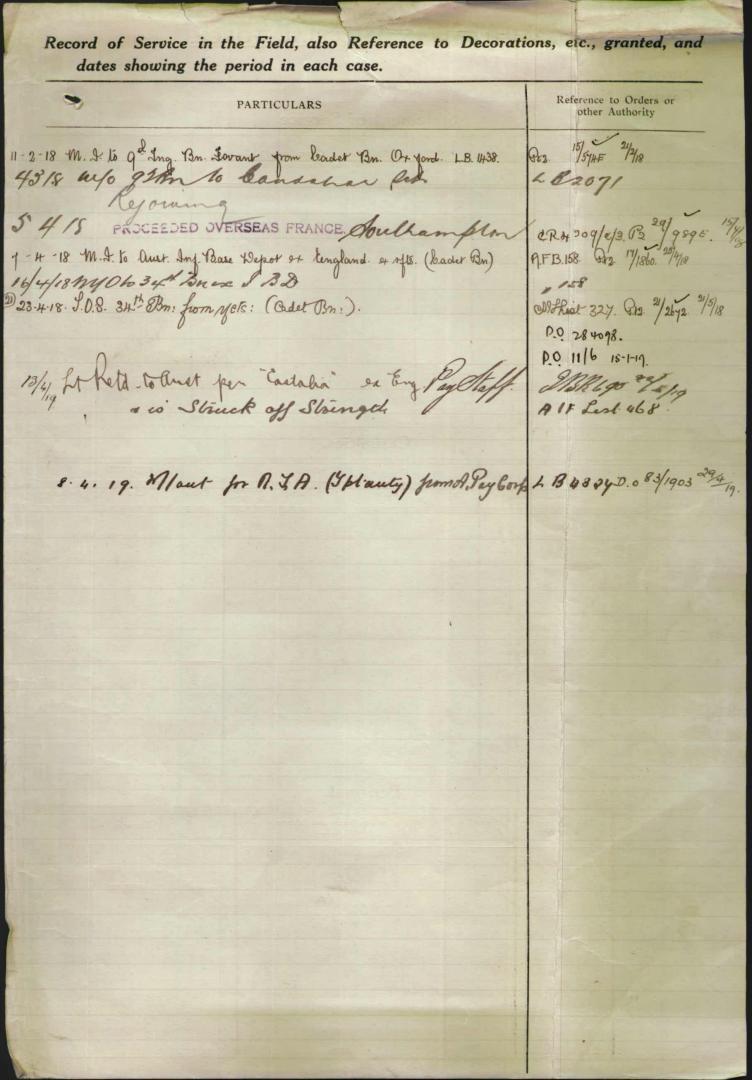 Record of Service in the Field, also Reference to Decorations, etc., granted, and
dates showing the period in each case.
PARTICULARS
Reference to Orders or
other Authority
11-2-18 M.I to 9th Trng. Bn. Fovant from Cadet Bn. Oxford. L.B. 1438. 21/2/18
4 3 18 w/o 9 T Bn to Candahar
L B 2071
Rejoining
5 4 18 PROCEEDED OVERSEAS FRANCE Southampton
7-4-18 M.I. to Aust. Inf. Base Depot ex England. ex rfts. (Cadet Bn)
A.F.B. 158.
16/4/18 M/O to 34th Bn ex I B D
" 158
23-4-18. T.O.S. 34th Bn: from rfts: (Cadet Bn:).
327. 21/5/18
D.O 284098.
D.O 11/6 15-1-19.
13/4/19 Lt Retd. to Aust per "Castalia" ex Eng Pay Staff.
& is Struck off Strength
A I F List 468
8. 4. 19. M/out for A.I.A. from A. Pay Corps
L B 4324 D.O 83/1903 29/4/19.